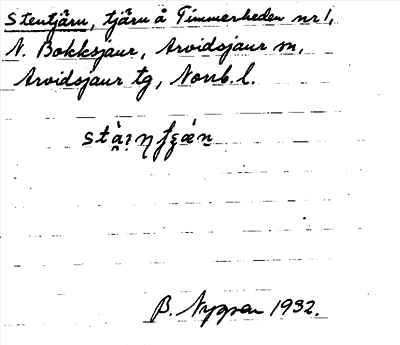 Stentjärn, tjärn å Timmerheden nr 1,
N. Bokksjaur, Arvidsjaur sn,
Arvidsjaur tg, Norrb. l.
B. Nygren 1932.